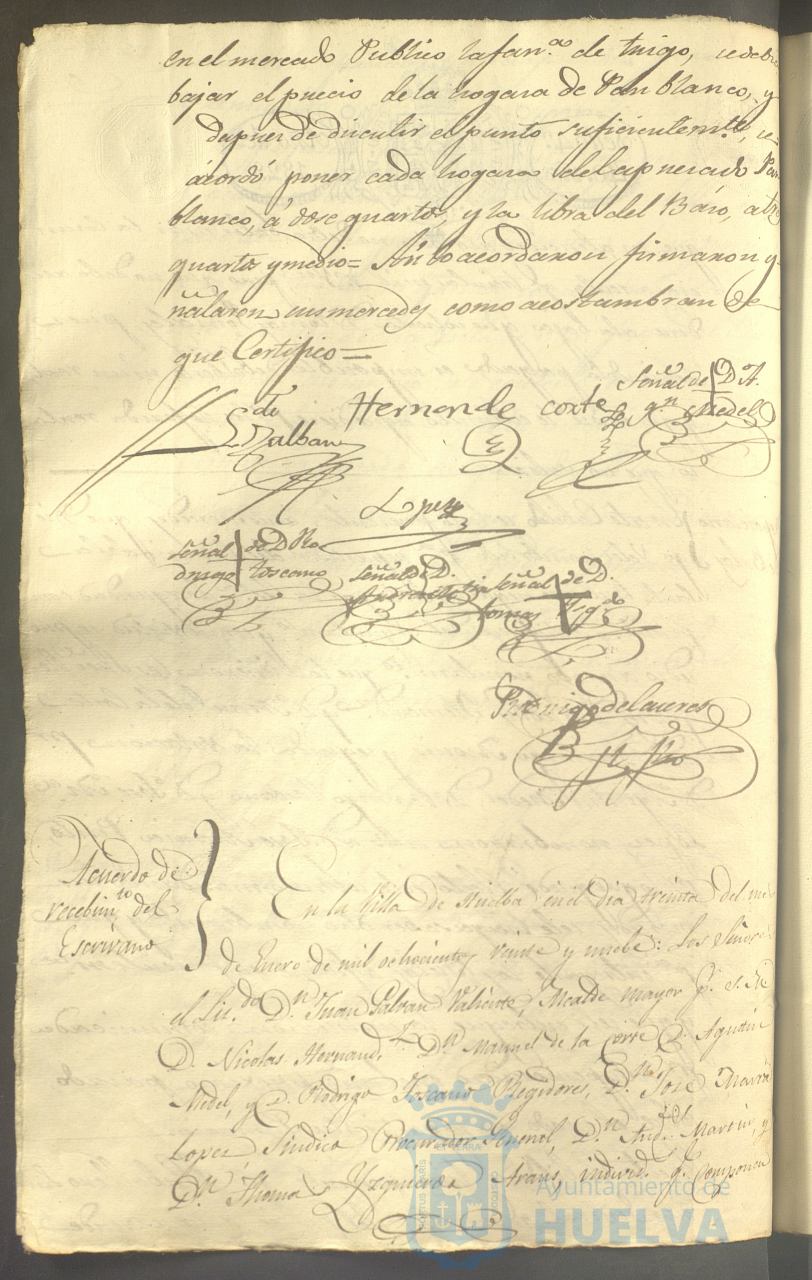 en el mercado Publico la fan.ª de trigo, se debe
bajar el precio de la hogasa de Pan blanco, y
despues de discutir el punto suficientem.te, se
acordó poner cada hogasa del apresiado Pan
blanco, á dose quartos, y la libra del Baso, a tres
quartos y medio = Asi lo acordaron firmaron y
señalaron sus mercedes como acostumbran de
que Certifico =
L.do Galban
Hernande
corte
Señal de D. A.
g.n Medel
Lopez
Señal de D. Ro
drigo toscano
Señal de D.
Señal de D.
tomas
Acuerdo de
recebim.to del
Escrivano
En la Villa de Huelba en el dia treinta del mes
de Enero de mil ochocientos veinte y nuebe: Los Señores
el Lic.do D.n Juan Galvan Valiente, Alcalde mayor p.r S. M.
D. Nicolas Hernand.z D.n Manuel de la Corte D. Agustin
Medel, y D. Rodrigo Toscano Regidores, D.n José Maria
Lopez, Sindico Procurador General, D.n And.s Martin, y
D.n Thomas Yzquierdo Araus, individ.s q.e componen
Ayuntamiento de
HUELVA